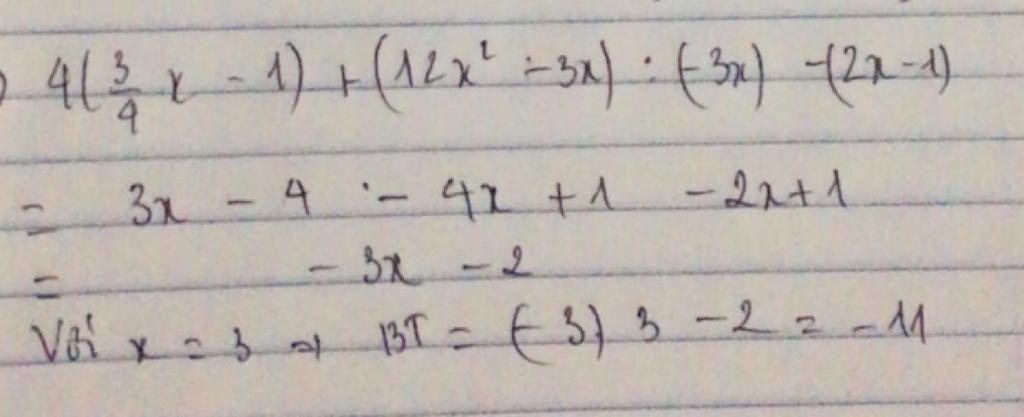 ) 4(3/4 x - 1) + (12x² - 3x) : (-3x) - (2x - 1)
= 3x - 4 - 4x + 1 - 2x + 1
= - 3x - 2
Với x = 3 ⇒ BT = (-3) 3 - 2 = -11